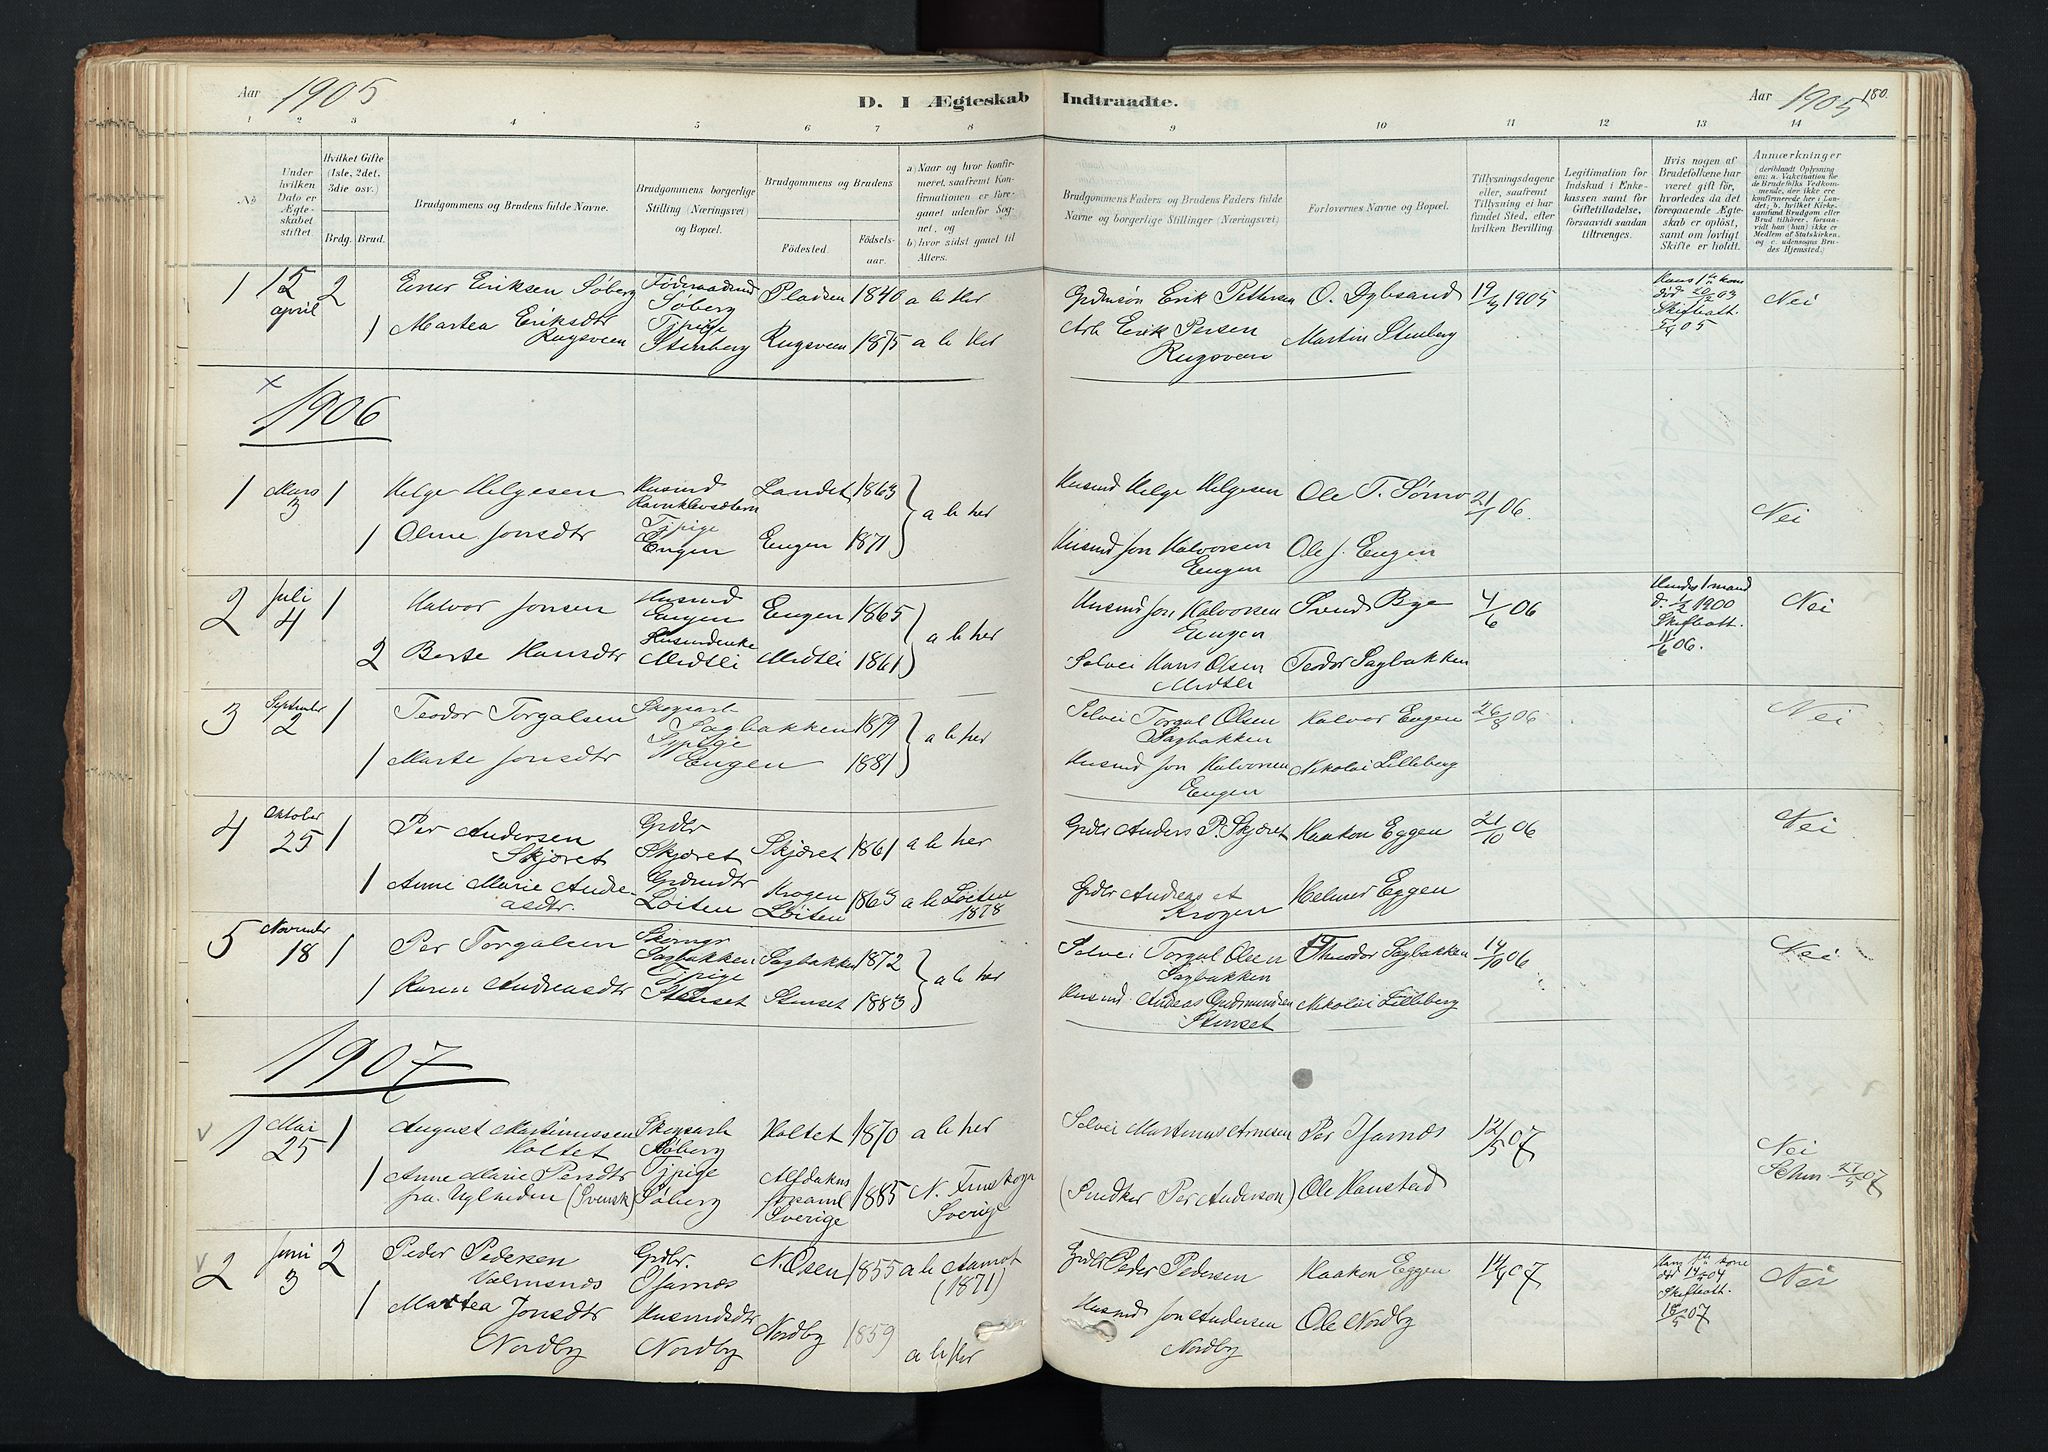 Aar 1905
D. I Ægteskab Indtraadte.
Aar 1905 180.
1 2 3 4 5 6 7 8 9 10 11 12 13 14
No
Under hvilken Dato er Ægteskabet stiftet.
Hvilket Gifte (1ste, 2det, 3die osv.)
Brdg. Brud.
Brudgommens og Brudens fulde Navne.
Brudgommens borgerlige Stilling (Næringsvei) og Bopæl.
Brudgommens og Brudens
Fødested. Fødselsaar.
a) Naar og hvor konfirmeret, saafremt Konfirmationen er foregaaet udenfor Sognet, og
b) hvor sidst gaaet til Alters.
Brudgommens Faders og Brudens Faders fulde Navne og borgerlige Stillinger (Næringsvei)
Forlovernes Navne og Bopæl.
Tillysningsdagene eller, saafremt Tillysning ei har fundet Sted, efter hvilken Bevilling.
Legitimation for Indskud i Enkekassen samt for Giftetilladelse, forsaavidt saadan tiltrænges.
Hvis nogen af Brudefolkene har været gift før, hvorledes da det foregaaende Ægteskab er opløst, samt om lovligt Skifte er holdt.
Anmærkninger
1 15 april 2 Einer Eriksen Søberg Føderaadsmd Søberg Pladsen 1840 a b her Grdmsøn Erik Pettersen O. Dybsand 19/3 1905 Hans 1ste kone død 20/12 03 Skifteatt. 5/4 05 Nei
1 Martea Eriksdtr Rugsveen Tjpige Stenberg Rugsveen 1875 a b her Arb Erik Persen Rugsveen Martin Stenberg
1906
1 Mars 3 1 Helge Helgesen Husmd Landet 1863 a b her Husmd Helge Helgesen Ole T. Sørmo 21/1 06. Nei
1 Oline Jonsdtr Tjpige Engen Engen 1871 Husmd Jon Halvorsen Engen Ole J. Engen
2 Juli 4 1 Halvor Jonsen Husmd Engen Engen 1865 a b her Husmd Jon Halvorsen Engen Svend Bye 4/6 06 Hendes 1 mand d. 1/2 1900 Skifteatt. 11/6 06. Nei
2 Berte Hansdtr Husmdenke Midtli Midtli 1861 Selvei Hans Olsen Midtli Teodor Sagbakken
3 September 2 1 Teodor Torgalsen Skogsarb Sagbakken 1879 a b her Selvei Torgal Olsen Sagbakken Halvor Engen 26/8 06 Nei
1 Marte Jonsdtr Sypige Engen 1881 Husmd Jon Halvorsen Engen Nikolai Lilleberg
4 Oktober 25 1 Per Andersen Skjæret Grdbr Skjæret Skjæret 1861 a b her Grdbr Anders P. Skjæret Haakon Eggen 21/10 06 Nei
1 Anne Marie Andreasdtr. Grdmdtr Løiten Krogen Løiten 1863 a b Løiten 1878 Grdbr Andreas Krogen Helmer Eggen
5 November 18 1 Per Torgalsen Sagbakken Sagbakken 1872 a b her Selvei Torgal Olsen Sagbakken Theodor Sagbakken 14/10 06 Nei
1 Karen Andreasdtr Tjpige Stenset Stenset 1883 Husmd. Andreas Gudmundsen Stenset Nikolai Lilleberg
1907
1 Mai 25 1 August Martinussen Holtet Skogsarb Søberg Holtet 1870 a b her Selvei Martinus Arnesen Per Ifarnæs 12/5 07 Nei
1 Anne Marie Persdtr fra Nylanden (Svensk) Tjpige Søberg Alfdalens forsaml Sverige 1885 N. Finskoga Sverige (Snedker Per Anderson) Ole Hanstad 27/5 07
2 Juni 3 2 Peder Pedersen Valmsnæs Grdbr. Ifarnæs N. Osen 1855 a b Aamot (1871) Grdbr Peder Pedersen Haakon Eggen 14/4 07 Hans 1ste kone død 14/5 04 Skifteatt. 18/5 07 Nei
1 Martea Jonsdtr Nordby Husmdsdtr Nordby Nordby 1859 a b her Husmd Jon Andersen Nordby Ole Nordby